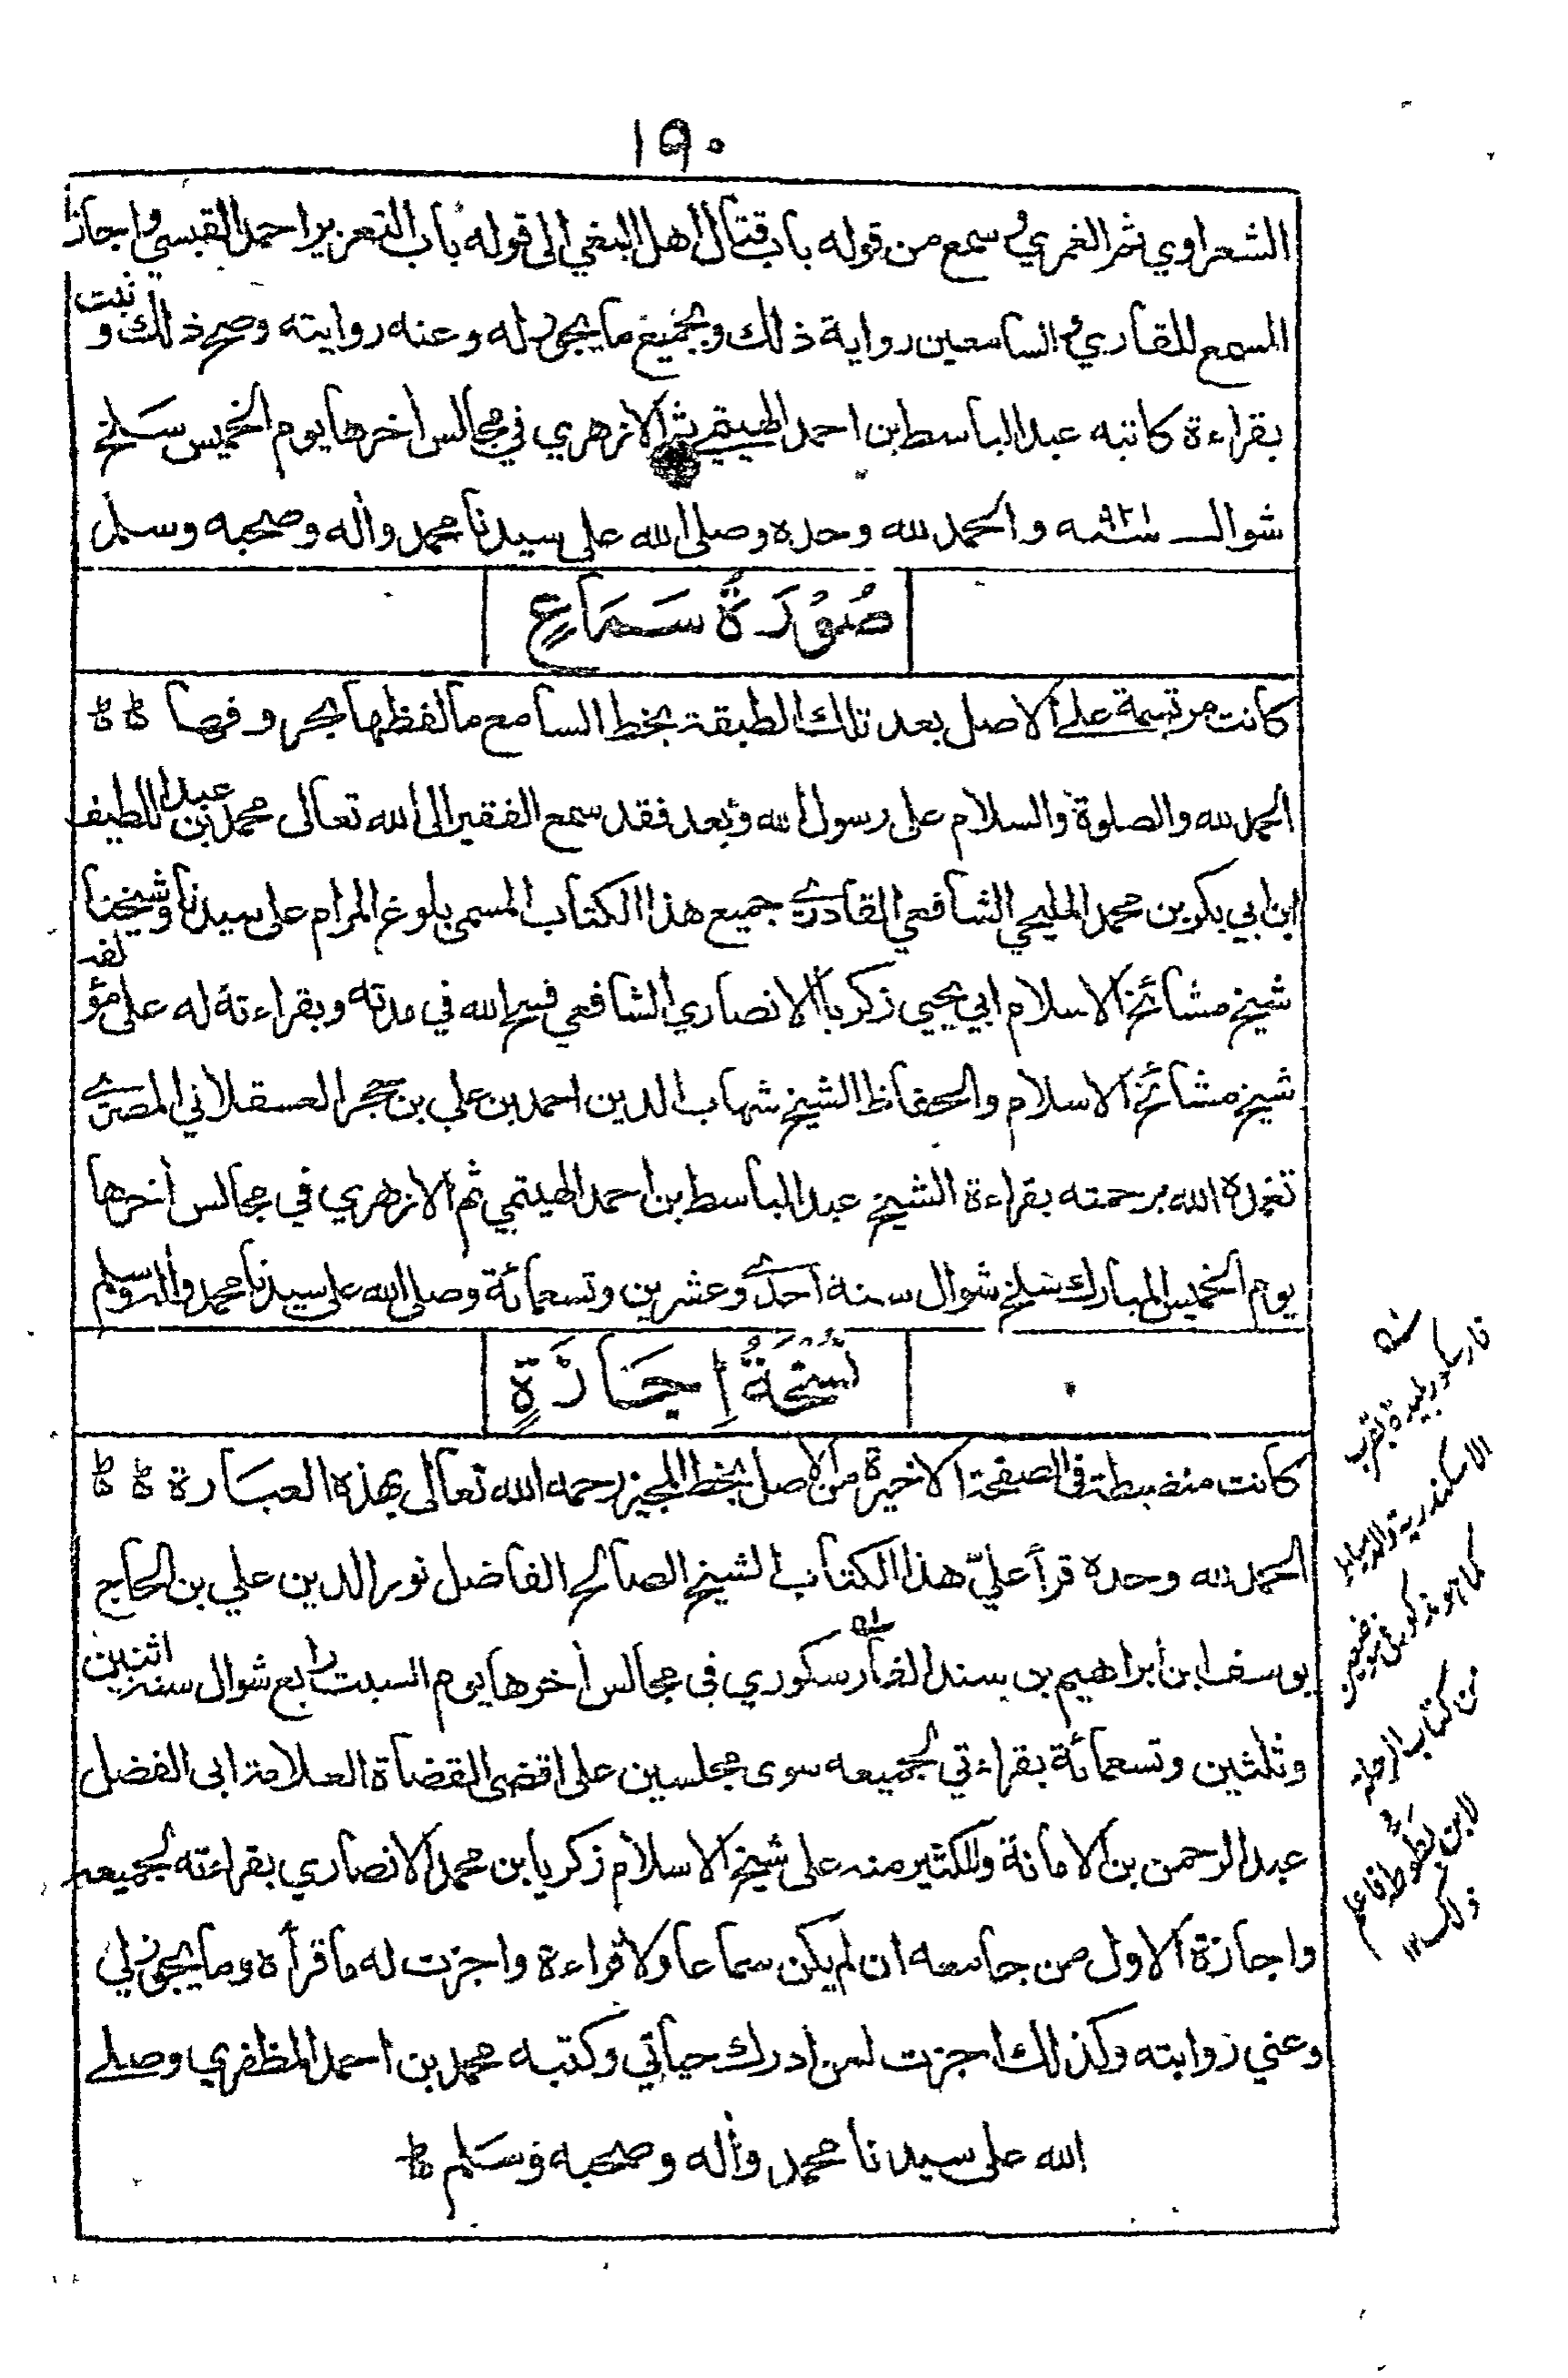 ١٩٠
الشعراوي ثم الغمري و سمع من قوله باب قتال اهل البغي الى قوله باب التعزير احمد القبسي واجاز
المسمع للقاري و السامعين رواية ذلك وبجميع ما يجوز له وعنه روايته وصح ذلك و ثبت
بقراءة كاتبه عبد الباسط بن احمد الهيتمي ثم الازهري في مجالس اخرها يوم الخميس سلخ
شوال سنه ٩٢١ و الحمد لله وحده وصلى الله على سيدنا محمد واله وصحبه وسلم
صُوْرَةُ سَمَاعٍ
كانت مرتسمة على الاصل بعد تلك الطبقة بخط السامع ما لفظها بحروفها
الحمد لله والصلوة والسلام على رسول الله وبعد فقد سمع الفقير الى الله تعالى محمد بن عبد اللطيف
ابن ابي بكر بن محمد المليجي الشافعي القادري جميع هذا الكتاب المسمى بلوغ المرام على سيدنا وشيخنا
شيخ مشائخ الاسلام ابي يحيى زكريا الانصاري الشافعي فسح الله في مدته وبقراءته له على مؤلفه
شيخ مشائخ الاسلام والحفاظ الشيخ شهاب الدين احمد بن علي بن حجر العسقلاني المصري
تغمده الله برحمته بقراءة الشيخ عبد الباسط بن احمد الهيتمي ثم الازهري في مجالس اخرها
يوم الخميس المبارك سلخ شوال سنة احدى وعشرين وتسعمائة وصلى الله على سيدنا محمد واله وسلم
نُسْخَةُ اِجَازَةٍ
كانت منضبطة في الصفحة الاخيرة من الاصل بخط المجيز رحمه الله تعالى بهذه العبارة
الحمد لله وحده قرأ عليّ هذا الكتاب الشيخ الصالح الفاضل نور الدين علي بن الحاج
يوسف ابن ابراهيم بن سند الفارسكوري في مجالس اخرها يوم السبت رابع شوال سنه اثنين
وثلثين وتسعمائة بقراءتي لجميعه سوى مجلسين على اقضى القضاة العلامة ابى الفضل
عبد الرحمن بن الامانة والكثير منه على شيخ الاسلام زكريا بن محمد الانصاري بقراءته لجميعه
واجازة الاول من جامعه ان لم يكن سماعا ولا قراءة واجزت له ما قرأه وما يجوز لي
وعني روايته وكذلك اجزت لمن ادرك حياتي وكتبه محمد بن احمد المظفري وصلى
الله على سيدنا محمد واله وصحبه وسلم
فارسكور بليدة بقرب
الاسكندرية
من كتاب الرحلة
لابن بطوطة فاعلم
ذلك ١٢